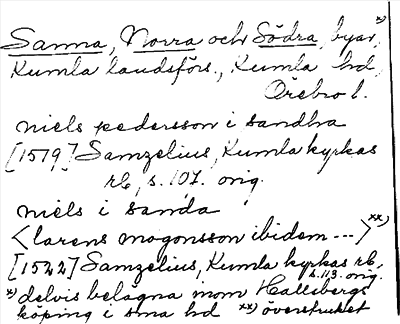 Sanna, Norra och Södra, byar, x)
Kumla landsförs., Kumla hd,
Örebro l.
niels pedersson i sandha
[1519] Samzelius, Kumla kyrkas
rb, s. 107. orig.
niels i sanda
<larens mogonsson ibidem ---> xx)
[1522] Samzelius, Kumla kyrkas rb,
s. 113. orig.
x) delvis belägna inom Hallsbergs
köping i sma hd xx) överstruket